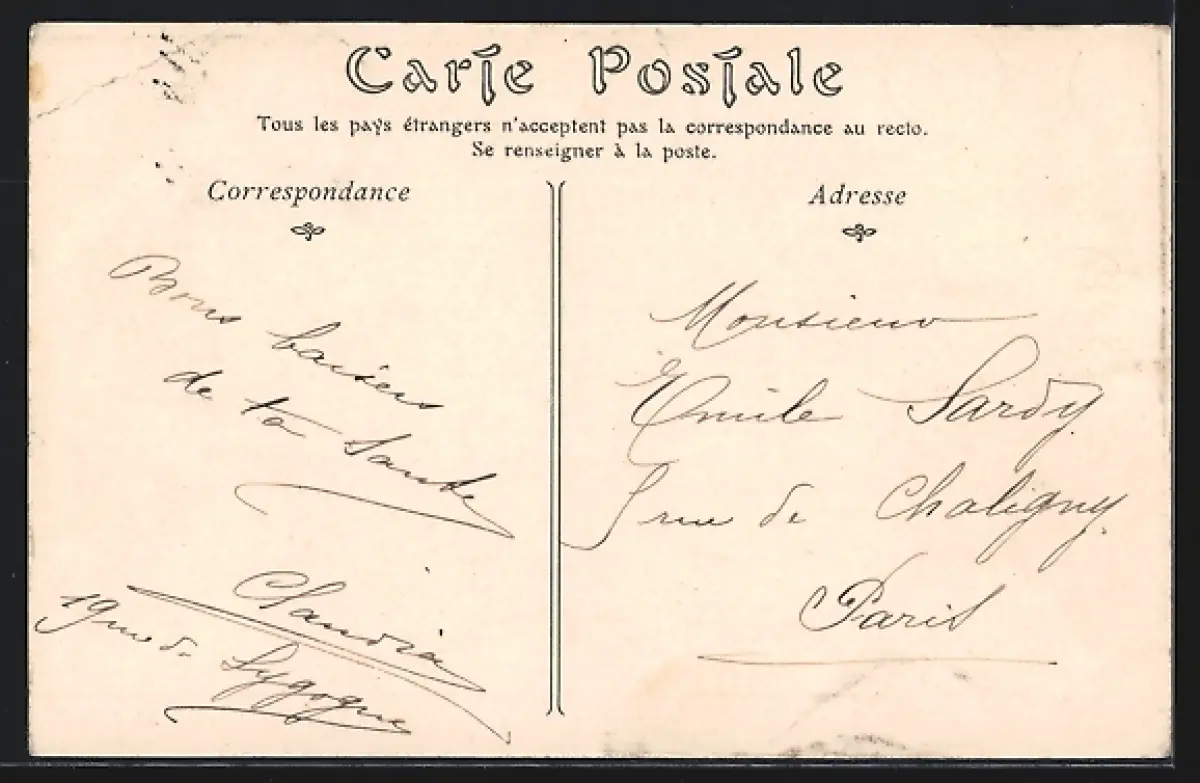 Carte Postale
Tous les pays étrangers n'acceptent pas la correspondance au recto.
Se renseigner à la poste.
Correspondance
Bons baisers
de ta
Claudia
19 rue de
Adresse
Monsieur
Emile Sardy
rue de Chaligny
Paris